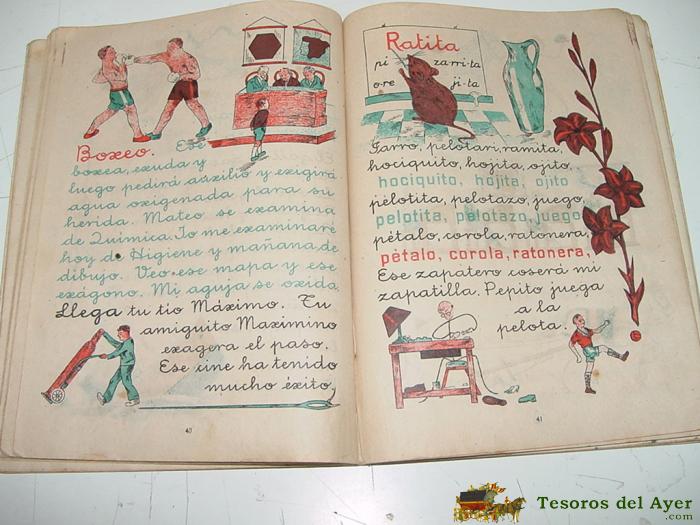 Boxeo. Ese
boxea, exuda y
luego pedirá auxilio y exigirá
agua oxigenada para su
herida. Mateo se examina
de Química. Yo me examinaré
hoy de Higiene y mañana, de
dibujo. Veo ese mapa y ese
exágono. Mi aguja se oxida.
Llega tu tío Máximo. Tu
amiguito Maximino
exagera el paso.
Ese cine ha tenido
mucho éxito.
40
Ratita
pi zarri-ta
o-re ji-ta
Jarro, pelotari, ramita,
hociquito, hojita, ojito,
hociquito, hojita, ojito
pelotita, pelotazo, juego,
pelotita, pelotazo, juego
pétalo, corola, ratonera,
pétalo, corola, ratonera,
Ese zapatero coserá mi
zapatilla. Pepito juega
a la
pelota.
41
Tesoros del Ayer
.com